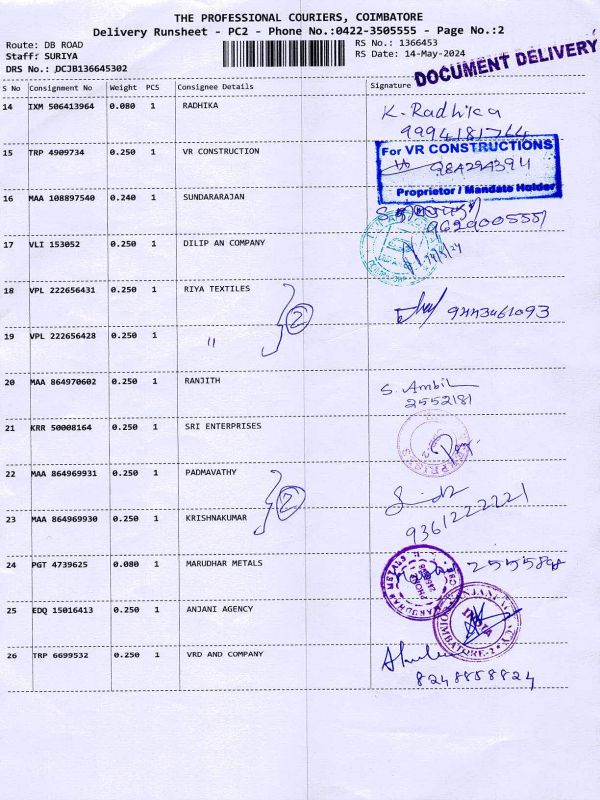 THE PROFESSIONAL COURIERS, COIMBATORE
Delivery Runsheet - PC2 - Phone No.:0422-3505555 - Page No.:2
Route: DB ROAD RS No.: 1366453
Staff: SURIYA RS Date: 14-May-2024
DRS No.: DCJB136645302
DOCUMENT DELIVERY
S No Consignment No Weight PCS Consignee Details Signature
14 IXM 506413964 0.080 1 RADHIKA K. Radhika
9994181764
15 TRP 4909734 0.250 1 VR CONSTRUCTION For VR CONSTRUCTIONS
Proprietor / Mandate Holder
16 MAA 108897540 0.240 1 SUNDARARAJAN
9629005551
17 VLI 153052 0.250 1 DILIP AN COMPANY
14/5/24
18 VPL 222656431 0.250 1 RIYA TEXTILES 2 9443461093
19 VPL 222656428 0.250 1 "
20 MAA 864970602 0.250 1 RANJITH S. Ambil
2552181
21 KRR 50008164 0.250 1 SRI ENTERPRISES
22 MAA 864969931 0.250 1 PADMAVATHY 2
23 MAA 864969930 0.250 1 KRISHNAKUMAR 9361222221
24 PGT 4739625 0.080 1 MARUDHAR METALS MARUDHAR METALS
25 EDQ 15016413 0.250 1 ANJANI AGENCY
COIMBATORE-2
26 TRP 6699532 0.250 1 VRD AND COMPANY
8248858824